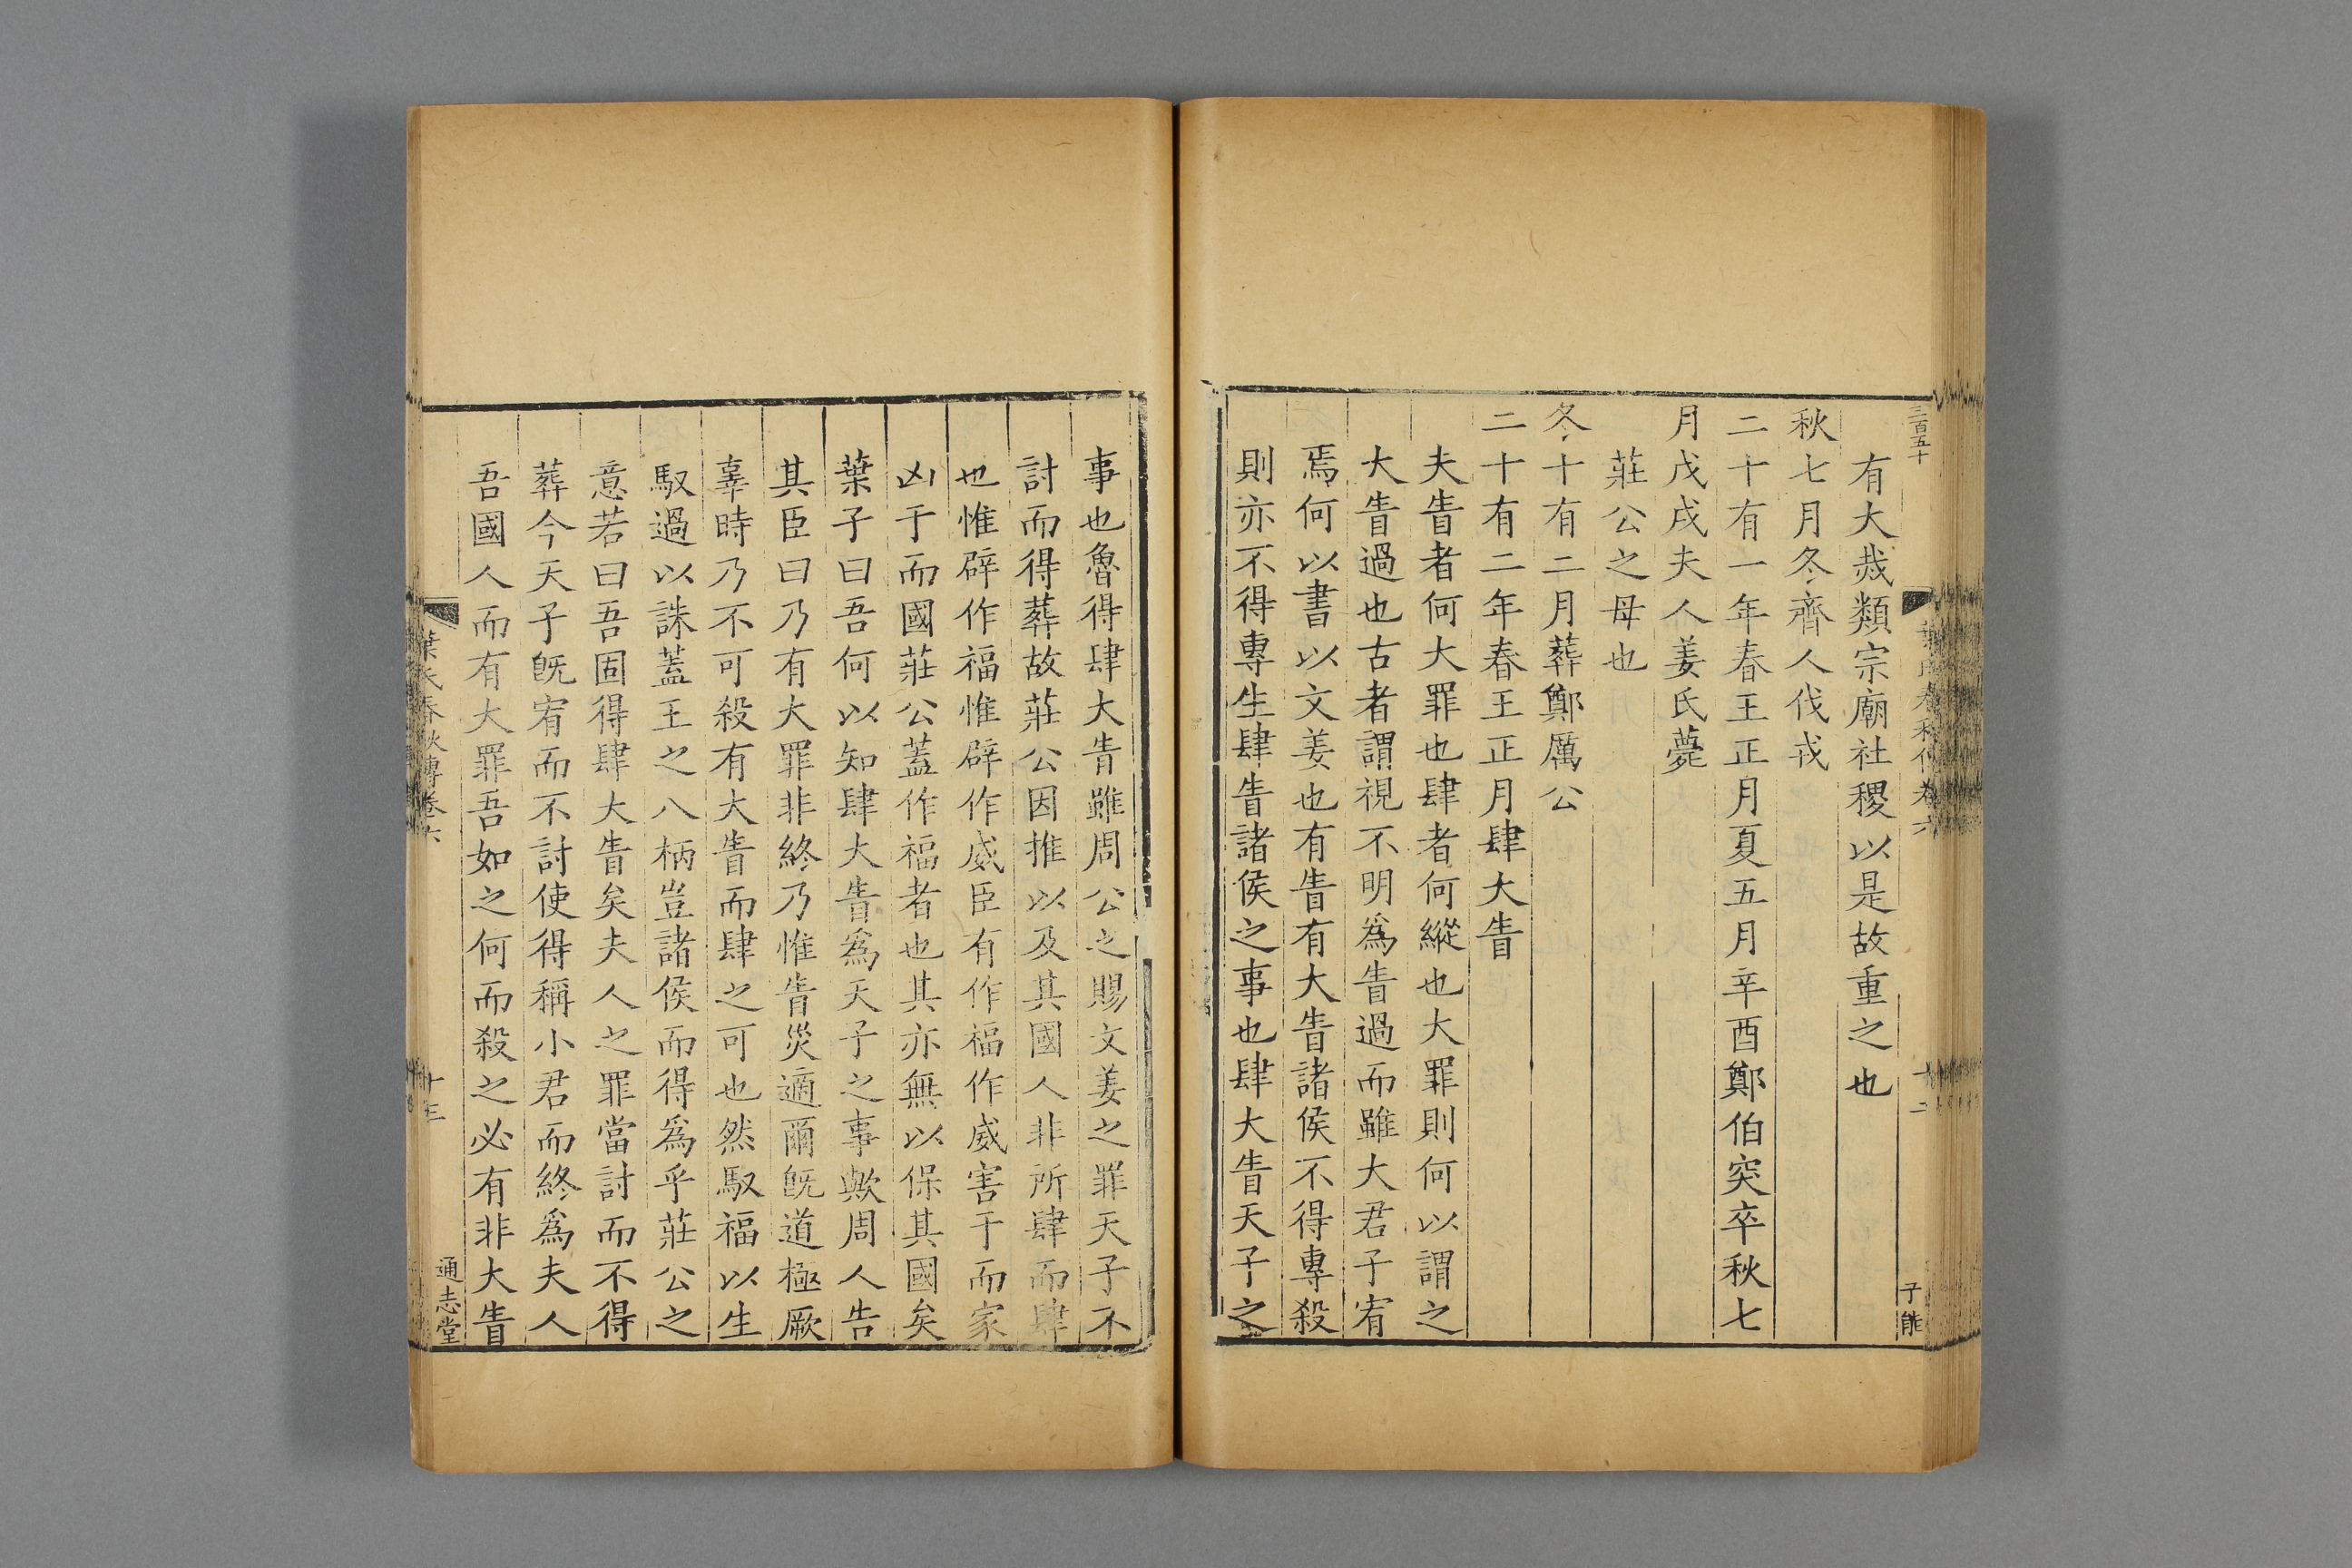 三百五十
有大烖類宗廟社稷以是故重之也
秋七月冬齊人伐戎
二十有一年春王正月夏五月辛酉鄭伯突卒秋七
月戊戌夫人姜氏薨
莊公之母也
冬十有二月葬鄭厲公
二十有二年春王正月肆大眚
夫眚者何大罪也肆者何縱也大罪則何以謂之
大眚過也古者謂視不明爲眚過而雖大君子宥
焉何以書以文姜也有眚有大眚諸侯不得專殺
則亦不得專生肆眚諸侯之事也肆大眚天子之
子能
事也魯得肆大眚雖周公之賜文姜之罪天子不
討而得葬故莊公因推以及其國人非所肆而肆
也惟辟作福惟辟作威臣有作福作威害于而家
凶于而國莊公蓋作福者也其亦無以保其國矣
葉子曰吾何以知肆大眚爲天子之事歟周人告
其臣曰乃有大罪非終乃惟眚災適爾旣道極厥
辜時乃不可殺有大眚而肆之可也然馭福以生
馭過以誅蓋王之八柄豈諸侯而得爲乎莊公之
意若曰吾固得肆大眚矣夫人之罪當討而不得
葬今天子旣宥而不討使得稱小君而終爲夫人
吾國人而有大罪吾如之何而殺之必有非大眚
葉氏春秋傳卷六
十三
通志堂